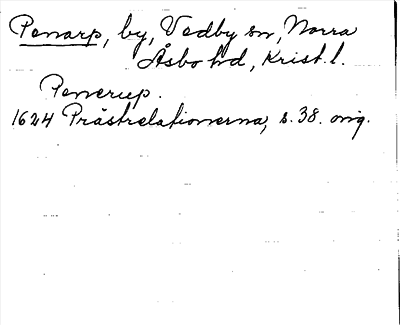 Penarp, by, Vedby sn, Norra
Åsbo hd, Krist. l.
Penerup.
1624 Prästrelationerna, s. 38. orig.